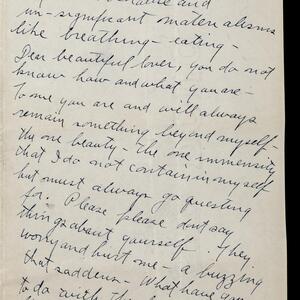 and
un-significant materialisms
like breathing - eating -
Dear beautiful lover, you do not
know how and what you are -
To me you are and will always
remain something beyond myself -
the one beauty - the one immensity
that I do not contain in myself
but must always go questing
for. Please please don't say
things about yourself. They
worry and hurt me - a buzzing
that saddens - What have you
to do with